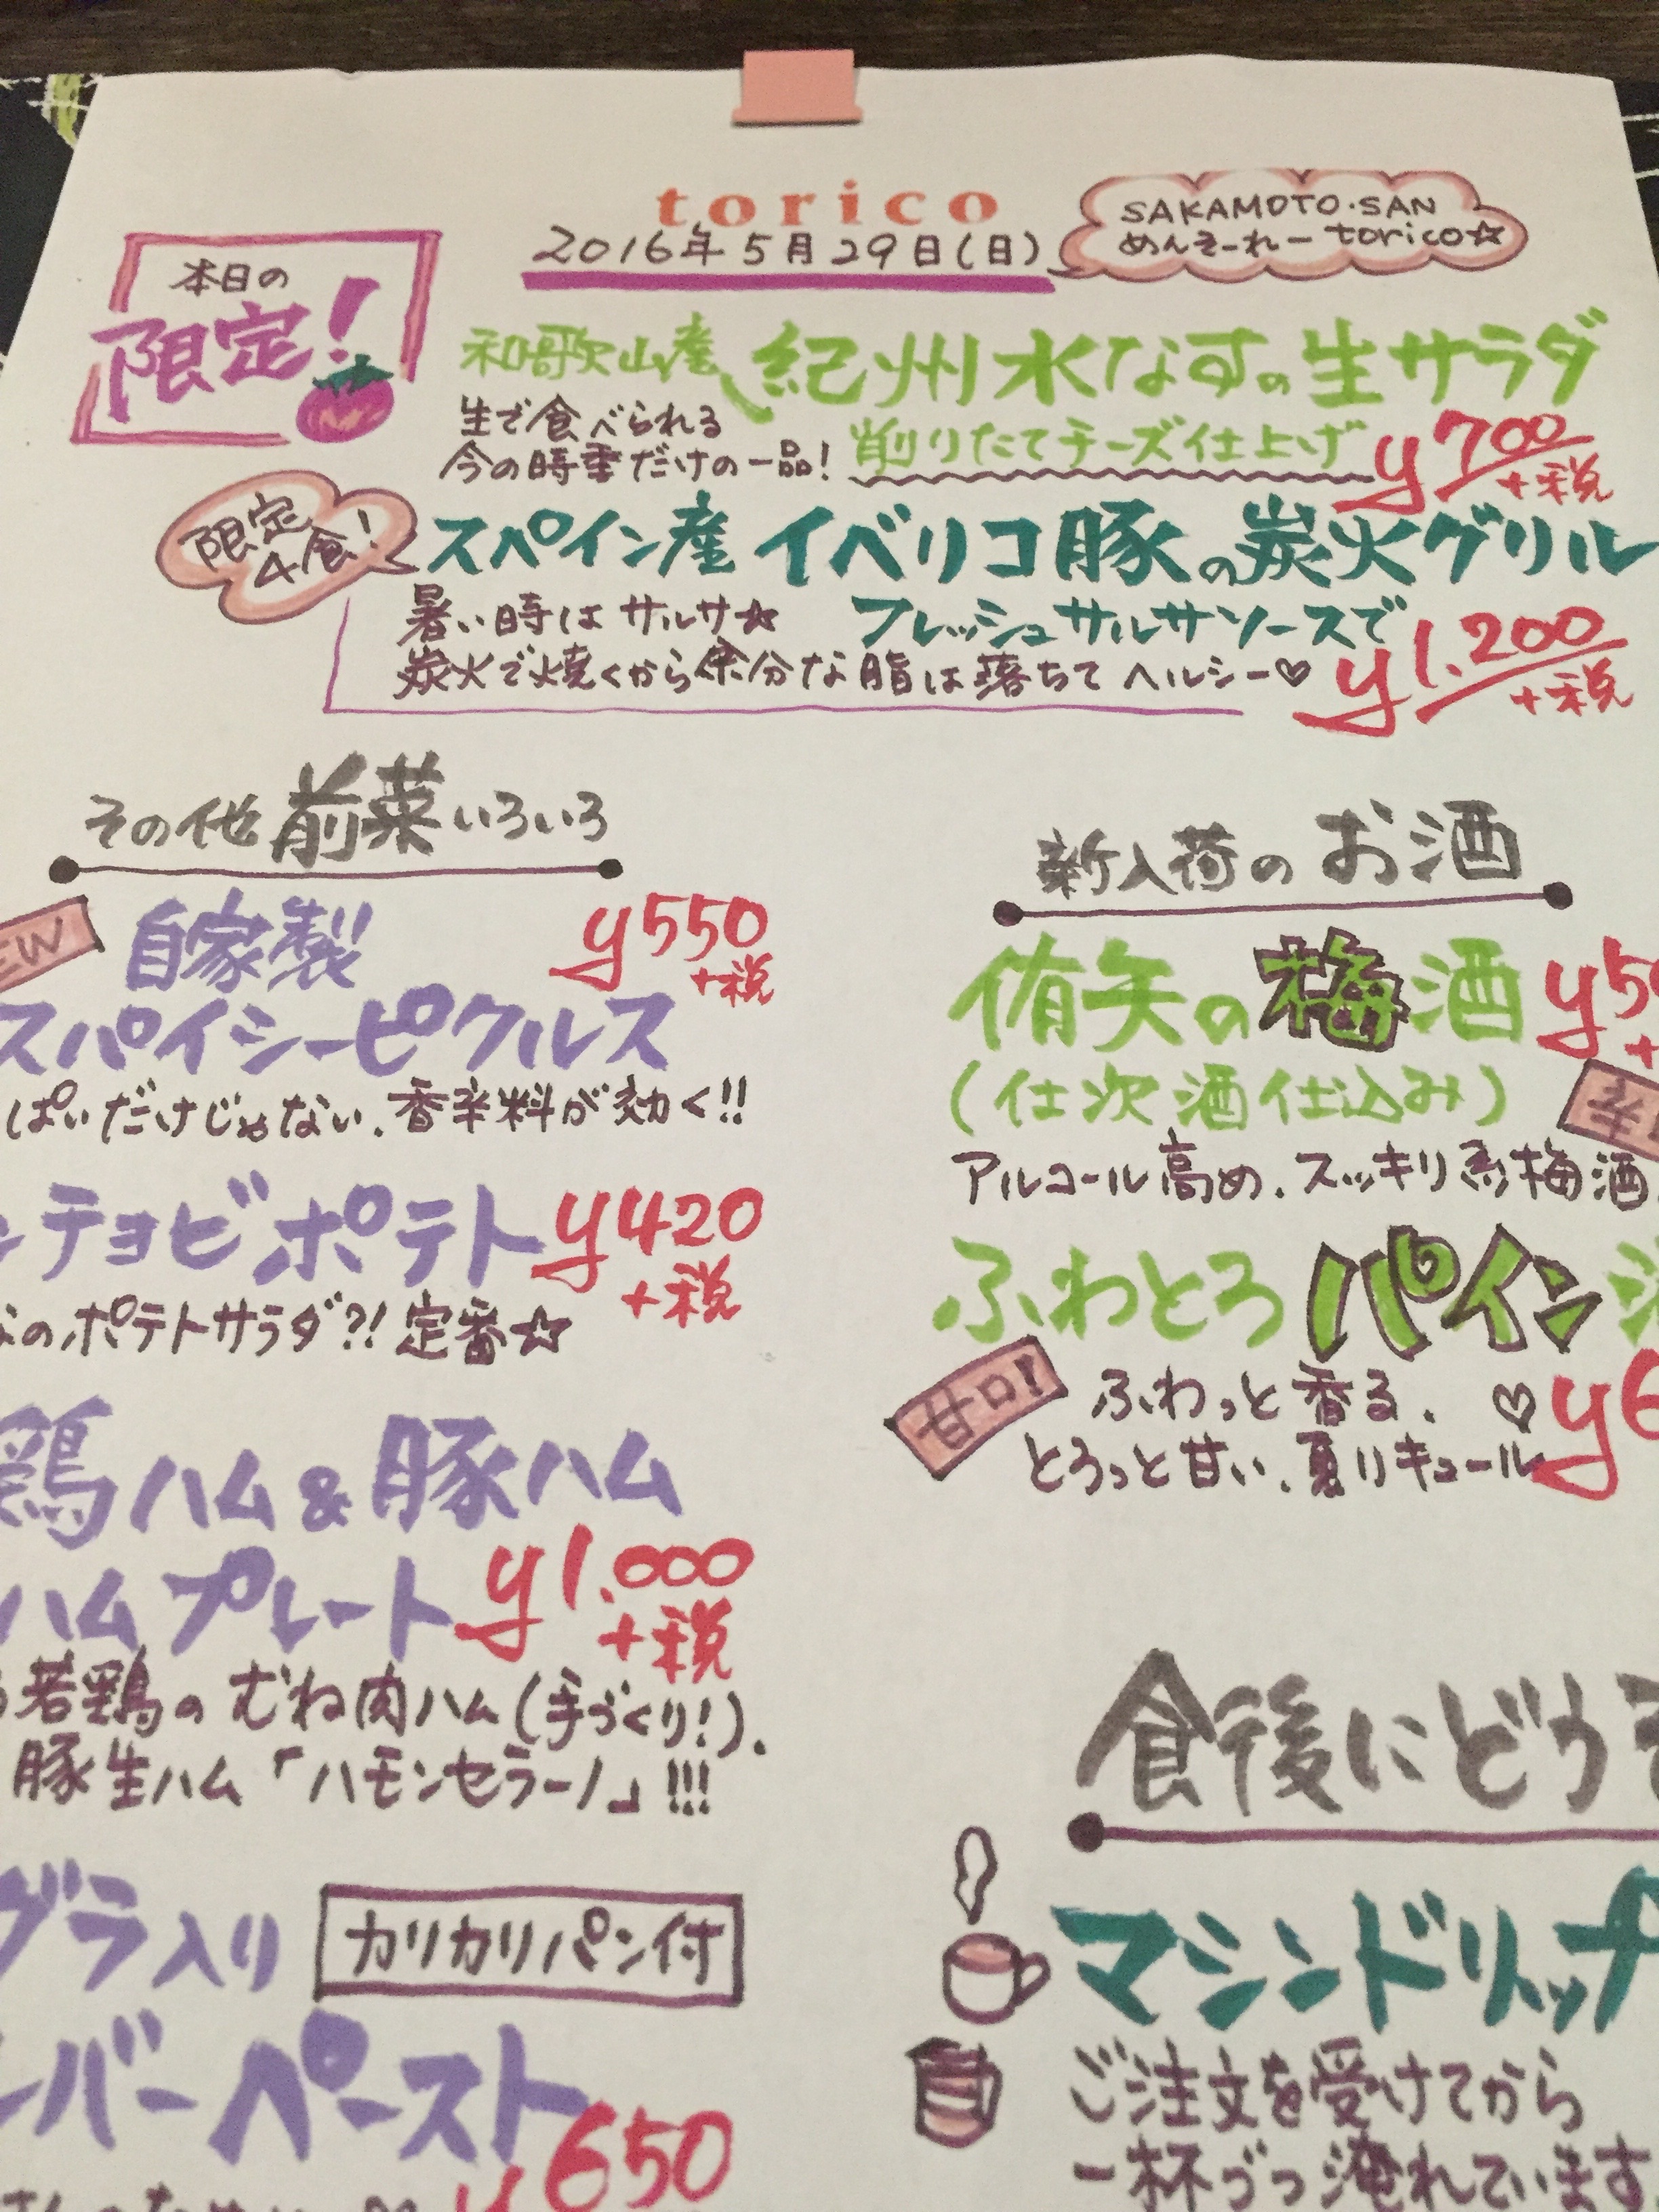 torico
2016年5月29日(日)
SAKAMOTO・SAN
めんそーれー torico☆
本日の
限定!
和歌山産 紀州水なすの生サラダ
生で食べられる
今の時季だけの一品! 削りたてチーズ仕上げ y700
+税
限定
4食!
スペイン産 イベリコ豚の炭火グリル
暑い時は サルサ☆ フレッシュサルサソースで
炭火で焼くから余分な脂は落ちて ヘルシー♡ y1.200
+税
その他 前菜いろいろ
自家製 y550
+税
スパイシーピクルス
ぱいだけじゃない、香辛料が効く!!
チョビポテト y420
+税
のポテトサラダ?! 定番☆
鶏ハム&豚ハム
ハムプレート y1.000
+税
若鶏の むね肉ハム(手づくり!)、
豚生ハム「ハモンセラーノ」!!!
グラ入り カリカリパン付
バーペースト
y650
新入荷の お酒
侑矢の梅酒
(仕次酒仕込み)
アルコール高め、スッキリ系梅酒
ふわとろ パイン
甘口!
ふわっと香る、♡
とろっと甘い、夏リキュール
食後にどうぞ
マシンドリップ
ご注文を受けてから
一杯づつ淹れています